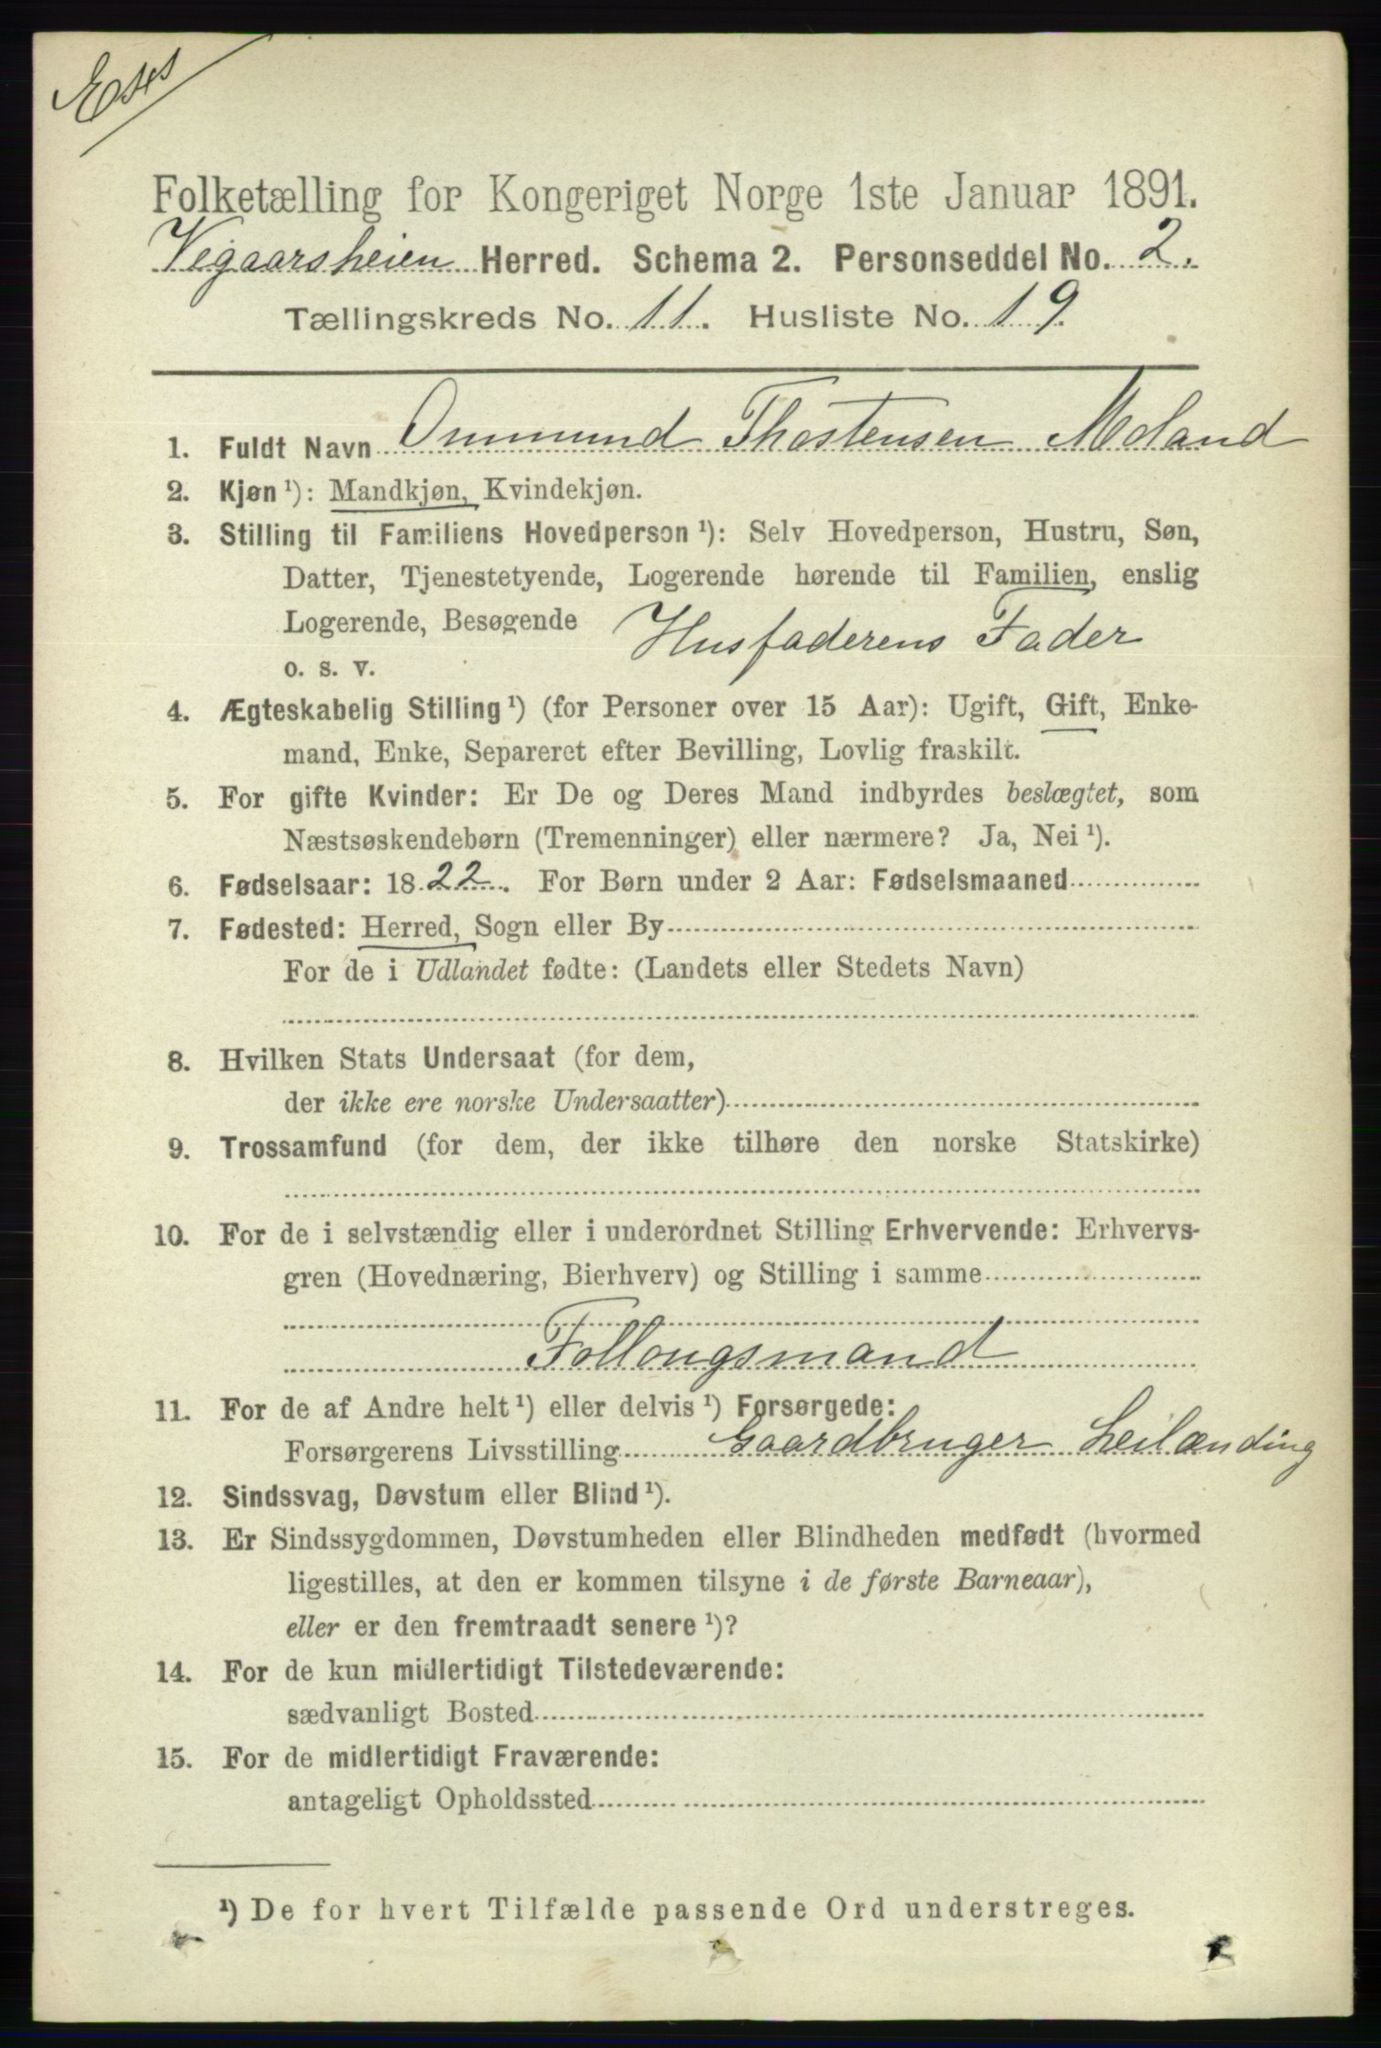 Folketælling for Kongeriget Norge 1ste Januar 1891.
Vegaarsheien Herred. Schema 2. Personseddel No. 2.
Tællingskreds No. 11. Husliste No. 19.
1. Fuldt Navn Ommund Thostensen Moland
2. Kjøn ¹): Mandkjøn, Kvindekjøn.
3. Stilling til Familiens Hovedperson ¹): Selv Hovedperson, Hustru, Søn,
Datter, Tjenestetyende, Logerende hørende til Familien, enslig
Logerende, Besøgende Husfaderens Fader
o. s. v.
4. Ægteskabelig Stilling ¹) (for Personer over 15 Aar): Ugift, Gift, Enke-
mand, Enke, Separeret efter Bevilling, Lovlig fraskilt.
5. For gifte Kvinder: Er De og Deres Mand indbyrdes beslægtet, som
Næstsøskendebørn (Tremenninger) eller nærmere? Ja, Nei ¹).
6. Fødselsaar: 1822. For Børn under 2 Aar: Fødselsmaaned
7. Fødested: Herred, Sogn eller By
For de i Udlandet fødte: (Landets eller Stedets Navn)
8. Hvilken Stats Undersaat (for dem,
der ikke ere norske Undersaatter)
9. Trossamfund (for dem, der ikke tilhøre den norske Statskirke)
10. For de i selvstændig eller i underordnet Stilling Erhvervende: Erhvervs-
gren (Hovednæring, Bierhverv) og Stilling i samme
Follougsmand
11. For de af Andre helt ¹) eller delvis ¹) Forsørgede:
Forsørgerens Livsstilling Gaardbruger Leilænding
12. Sindssvag, Døvstum eller Blind ¹).
13. Er Sindssygdommen, Døvstumheden eller Blindheden medfødt (hvormed
ligestilles, at den er kommen tilsyne i de første Barneaar),
eller er den fremtraadt senere ¹)?
14. For de kun midlertidigt Tilstedeværende:
sædvanligt Bosted
15. For de midlertidigt Fraværende:
antageligt Opholdssted
¹) De for hvert Tilfælde passende Ord understreges.